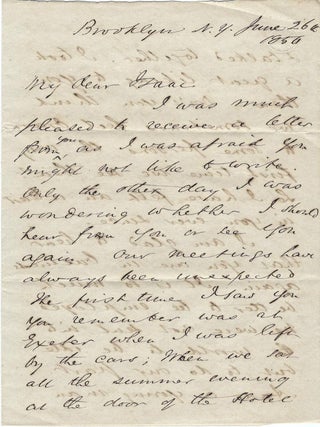 Brooklyn N.Y. June 26th
1856
My dear Isaac
I was much
pleased to receive a letter
from you as I was afraid you
might not like to write.
Only the other day I was
wondering whether I should
hear from you or see you
again. Our meetings have
always been unexpected
The first time I saw you
you remember was at
Exeter when I was left
by the cars; When we sat
all the summer evening
at the door of the Hotel